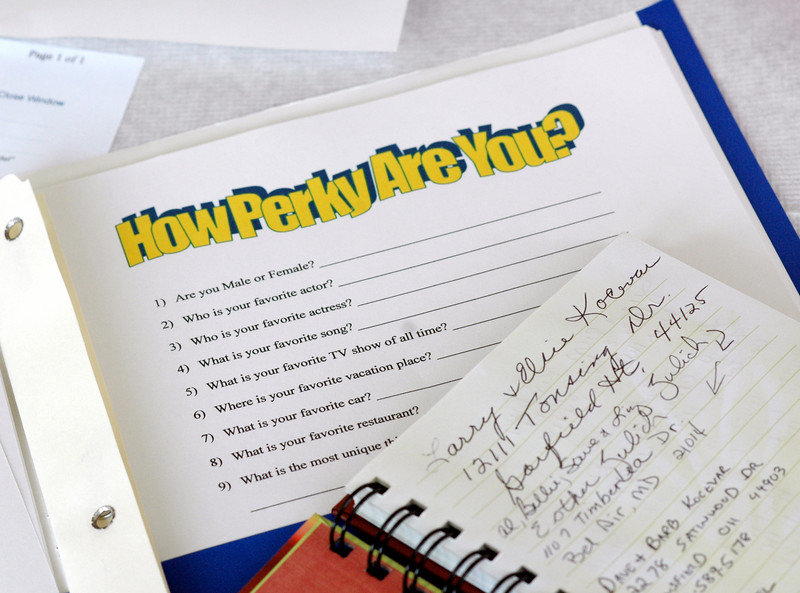 Page 1 of 1
Close Window
How Perky Are You?
1) Are you Male or Female?
2) Who is your favorite actor?
3) Who is your favorite actress?
4) What is your favorite song?
5) What is your favorite TV show of all time?
6) Where is your favorite vacation place?
7) What is your favorite car?
8) What is your favorite restaurant?
9) What is the most unique
Larry & Elsie Kocovar
12111 Tonsing Dr.
Garfield Ht. 44125
Al, Billie, Dave & Lin Zulich
Esther Zulich
1107 Timberlea Dr
Bel Air, MD 21014
DAVE & BARB KOCOVAR
2278 SATINWOOD DR
OH 44903
589-5178